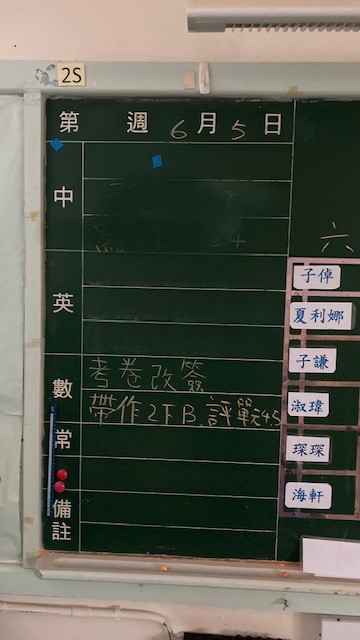 2S
第 週 6 月 5 日
中
六
英
數
考卷改簽
帶作2下B,評單元4.5
常
備註
子倬
夏利娜
子謙
淑瑋
琛琛
海軒